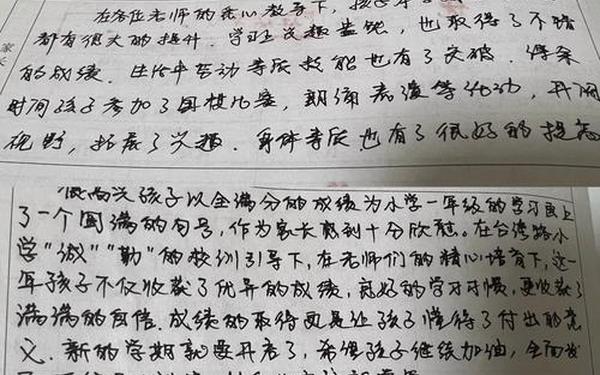 在各任老师的悉心教导下，孩子
都有很大的提升．学习上兴趣盎然，也取得了不错
的成绩．生活中劳动等质技能也有了突破．课余
时间孩子参加了围棋比赛，朗诵表演等活动，开阔
视野，拓展了兴趣．身体等质也有了很好的提高
很高兴孩子以全满分的成绩为小学一年级的学习画上
了一个圆满的句号，作为家长感到十分欣慰。在台湾路小
学“诚”“勤”的校训引导下，在老师们的精心培育下，这一
年孩子不仅收获了优异的成绩，良好的学习习惯，更收获了
满满的自信．成绩的取得更是让孩子懂得了付出的意
义．新的学期就要开启了，希望孩子继续加油，全面发